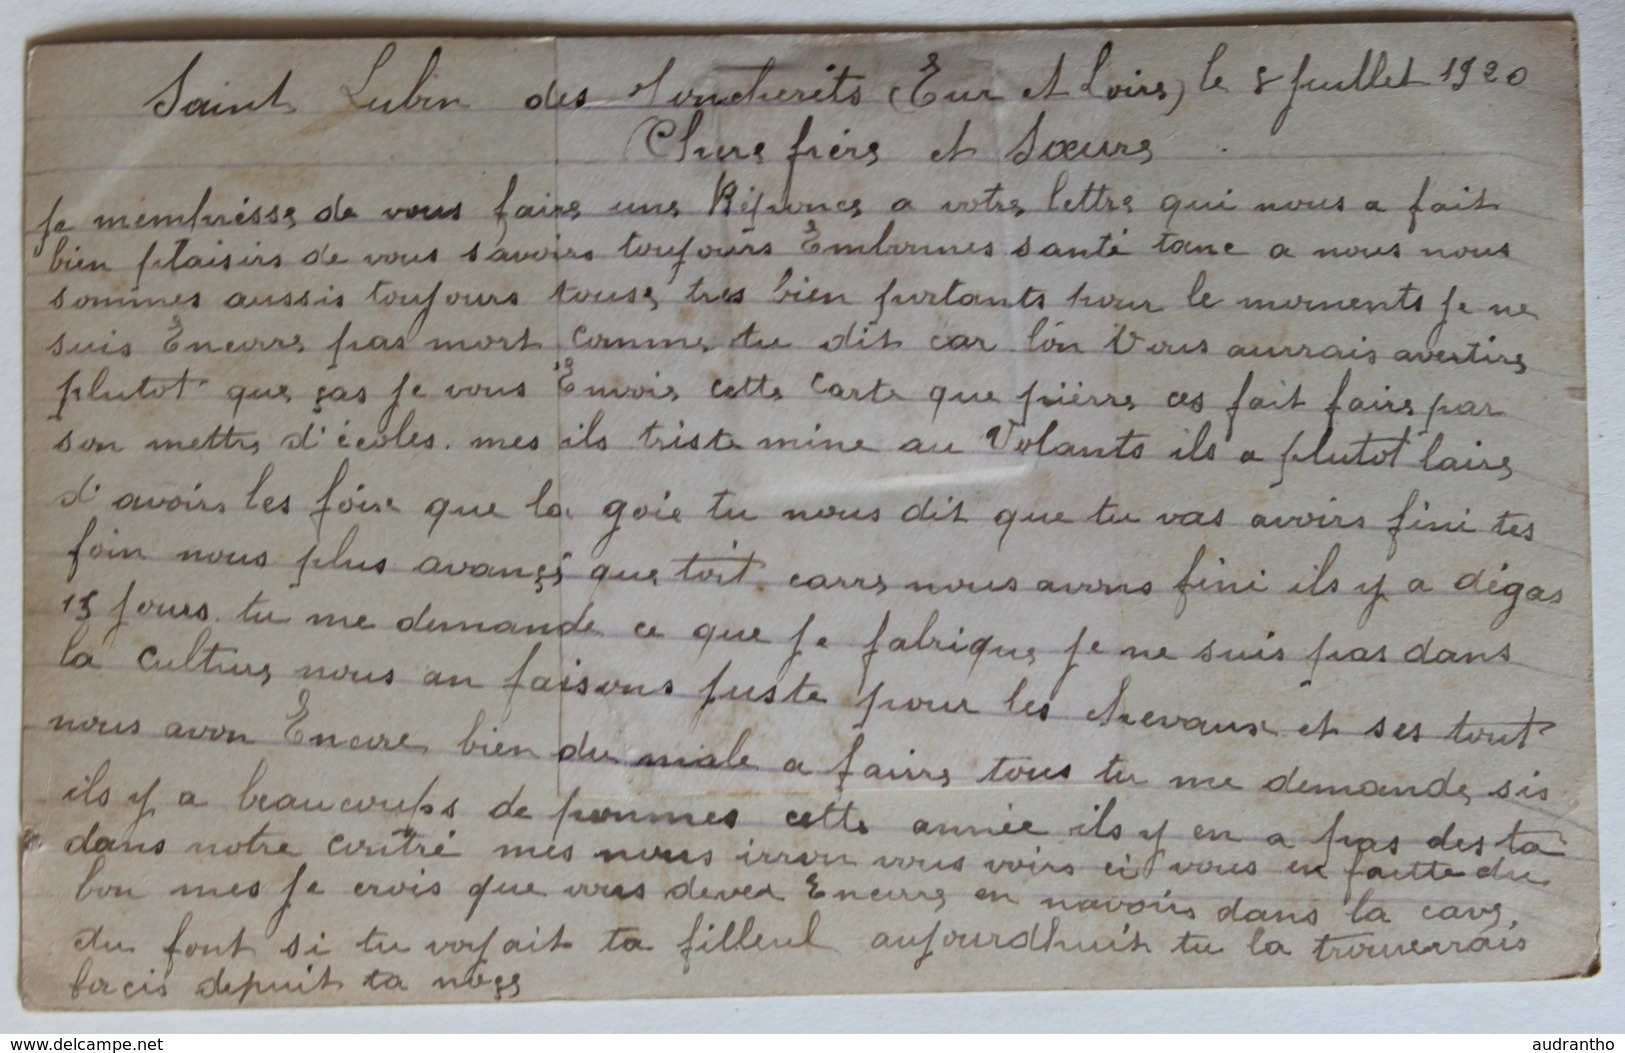 Saint Lubin des Joncherets (Eur et Loire) le 8 juillet 1920
Chers frére et Sœurs
je membrésse de vous faire une Réponce a votre lettre qui nous a fait
bien plaisirs de vous savoirs toujours Embonnes santé tanc a nous nous
sommes aussis toujours touse tres bien portants pour le moments je ne
suis Encorre pas mort comme tu dit car lón Vous aurrais avertire
plutot que ças je vous Envoie cette Carte que piérre ces fait faire par
son mettre d'écoles. mes ils triste mine au Volants ils a plutot laire
d'avoirs les foix que la goie tu nous dit que tu vas avoirs fini tes
foin nous plus avançé que toit carre nous avons fini ils y a dégas
15 jours. tu me demande ce que je fabrique je ne suis pas dans
la culture nous an faisons juste pour les chevaux et ses tout
nous avon Encore bien du male a faire tous tu me demande sis
ils y a beaucoups de pommes cette année ils y en a pas des ta
dans notre contré mes nous irron vous voirs ci vous en faitte du
bon mes je crois que vous devez Encorre en navoirs dans la cave
du font si tu voyait ta filleul aujourdhuit tu la trouverrais
forcis depuit ta noçe
www.delcampe.net
audrantho